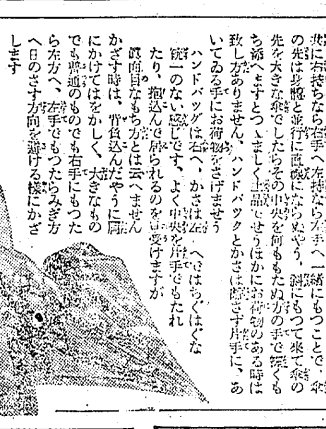 共に右持ちなら右手へ左持なら左手へ一緒にもつことで、傘
の先は身體と並行に直線にならぬやう、斜にもつて來て傘の
先を大きな傘でしたらその中央を何ももたぬ方の手で輕くも
ち添へますとつゝましく上品でせうほかにお荷物のある時は
致し方ありません、ハンドバックとかさは離さず片手に、あ
いてゐる手にお荷物をさげませう
ハンドバッグは右へ、かさは左へではちくはぐな
統一のない感じです、よく中央を片手でもたれ
たり、抱込んで居られるのを見受けますが
眞向目なもち方とは云へません
かざす時は、背負込んだやうに肩
にかけてはをかしく、大きなもの
でも普通のものでも右手にもつた
ら左方へ、左手でもつたらみぎ方
へ日のさす方向を避ける樣にかざ
します